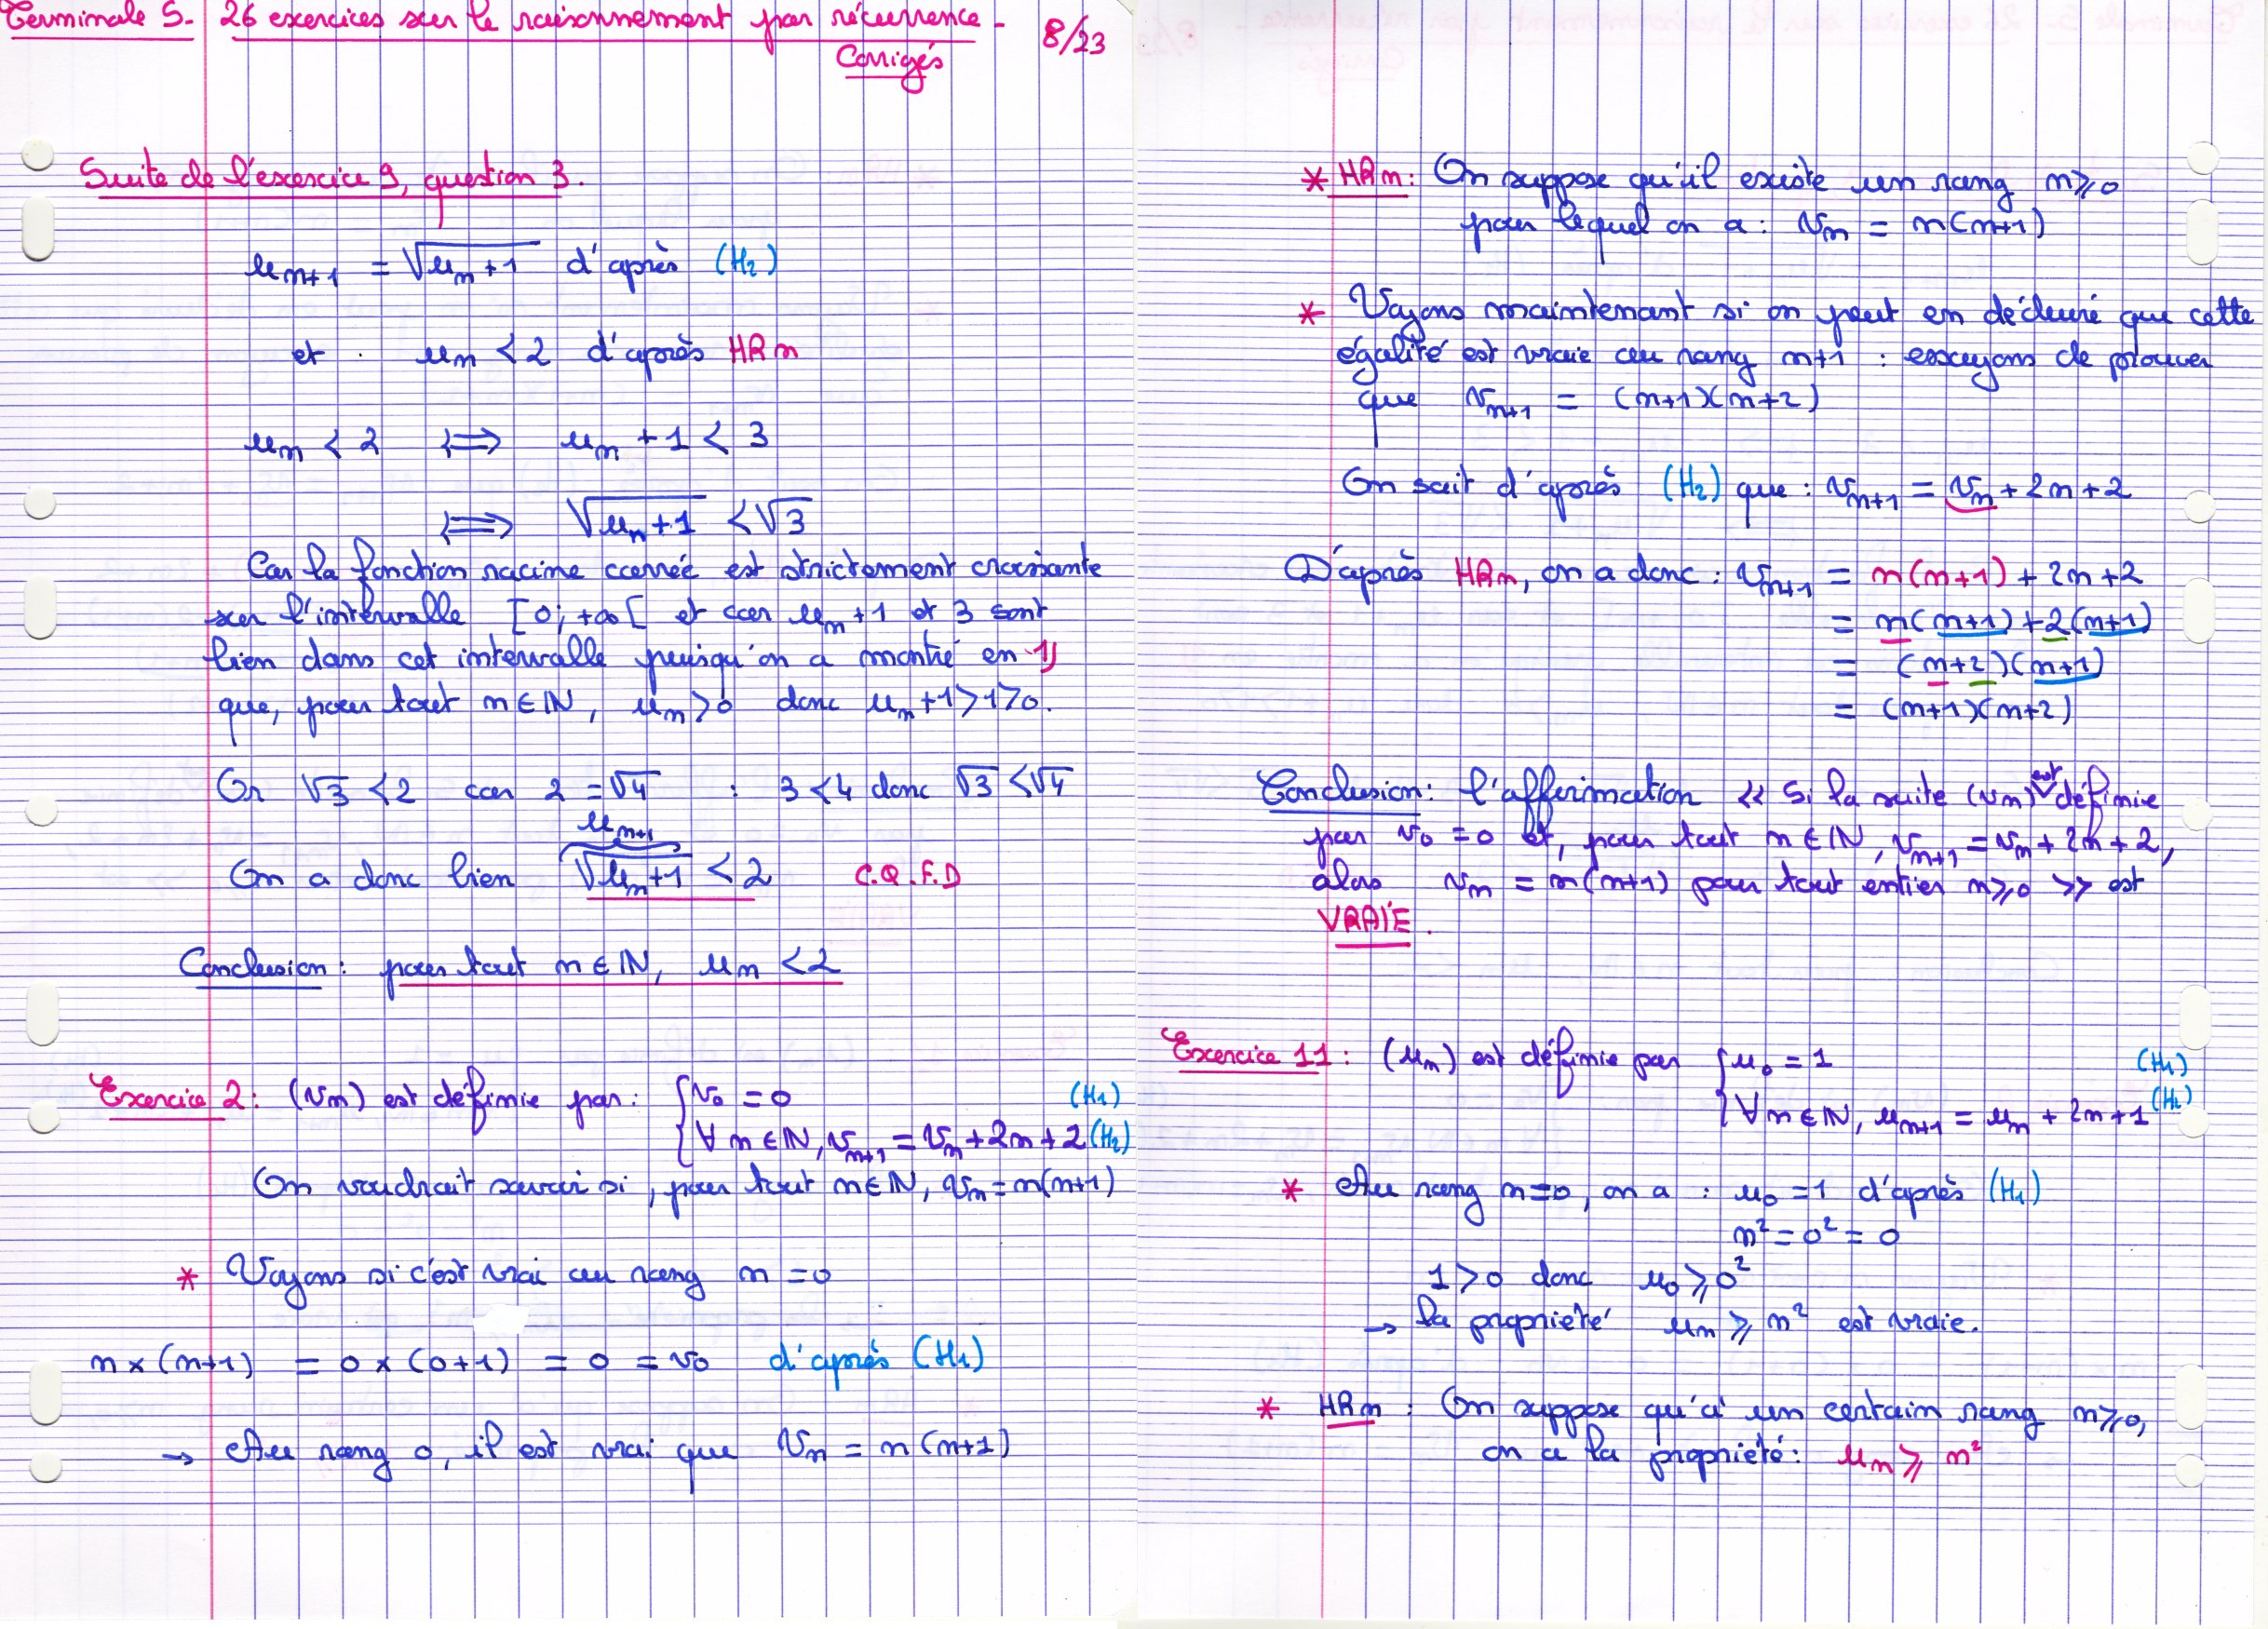 Terminale S. 26 exercices sur le raisonnement par récurrence - 8/23
Corrigés
Suite de l'exercice 9, question 3.
u_{n+1} = √(u_n + 1) d'après (H₂)
et . u_n < 2 d'après HRn
u_n < 2 ⟺ u_n + 1 < 3
⟺ √(u_n + 1) < √3
Car la fonction racine carrée est strictement croissante
sur l'intervalle [0; +∞[ et car u_n + 1 et 3 sont
bien dans cet intervalle puisqu'on a montré en 1)
que, pour tout n ∈ ℕ, u_n > 0 donc u_n + 1 > 1 > 0.
Or √3 < 2 car 2 = √4 : 3 < 4 donc √3 < √4
u_{n+1}
On a donc bien √(u_n + 1) < 2 C.Q.F.D
Conclusion : pour tout n ∈ ℕ, u_n < 2
Exercice 2 : (v_n) est définie par : { v₀ = 0 (H₁)
∀ n ∈ ℕ, v_{n+1} = v_n + 2n + 2 (H₂)
On voudrait savoir si, pour tout n ∈ ℕ, v_n = n(n+1)
* Voyons si c'est vrai au rang n = 0
n × (n+1) = 0 × (0+1) = 0 = v₀ d'après (H₁)
→ Au rang 0, il est vrai que v_n = n(n+1)
* HRn : On suppose qu'il existe un rang n ⩾ 0
pour lequel on a : v_n = n(n+1)
* Voyons maintenant si on peut en déduire que cette
égalité est vraie au rang n+1 : essayons de prouver
que v_{n+1} = (n+1)(n+2)
On sait d'après (H₂) que : v_{n+1} = v_n + 2n + 2
D'après HRn, on a donc : v_{n+1} = n(n+1) + 2n + 2
= n(n+1) + 2(n+1)
= (n+2)(n+1)
= (n+1)(n+2)
Conclusion : l'affirmation << Si la suite (v_n) est définie
par v₀ = 0 et, pour tout n ∈ ℕ, v_{n+1} = v_n + 2n + 2,
alors v_n = n(n+1) pour tout entier n ⩾ 0 >> est
VRAIE.
Exercice 11 : (u_n) est définie par { u₀ = 1 (H₁)
∀ n ∈ ℕ, u_{n+1} = u_n + 2n + 1 (H₂)
* Au rang n = 0, on a : u₀ = 1 d'après (H₁)
n² = 0² = 0
1 > 0 donc u₀ ⩾ 0²
→ la propriété u_n ⩾ n² est vraie.
* HRn : On suppose qu'à un certain rang n ⩾ 0,
on a la propriété : u_n ⩾ n²